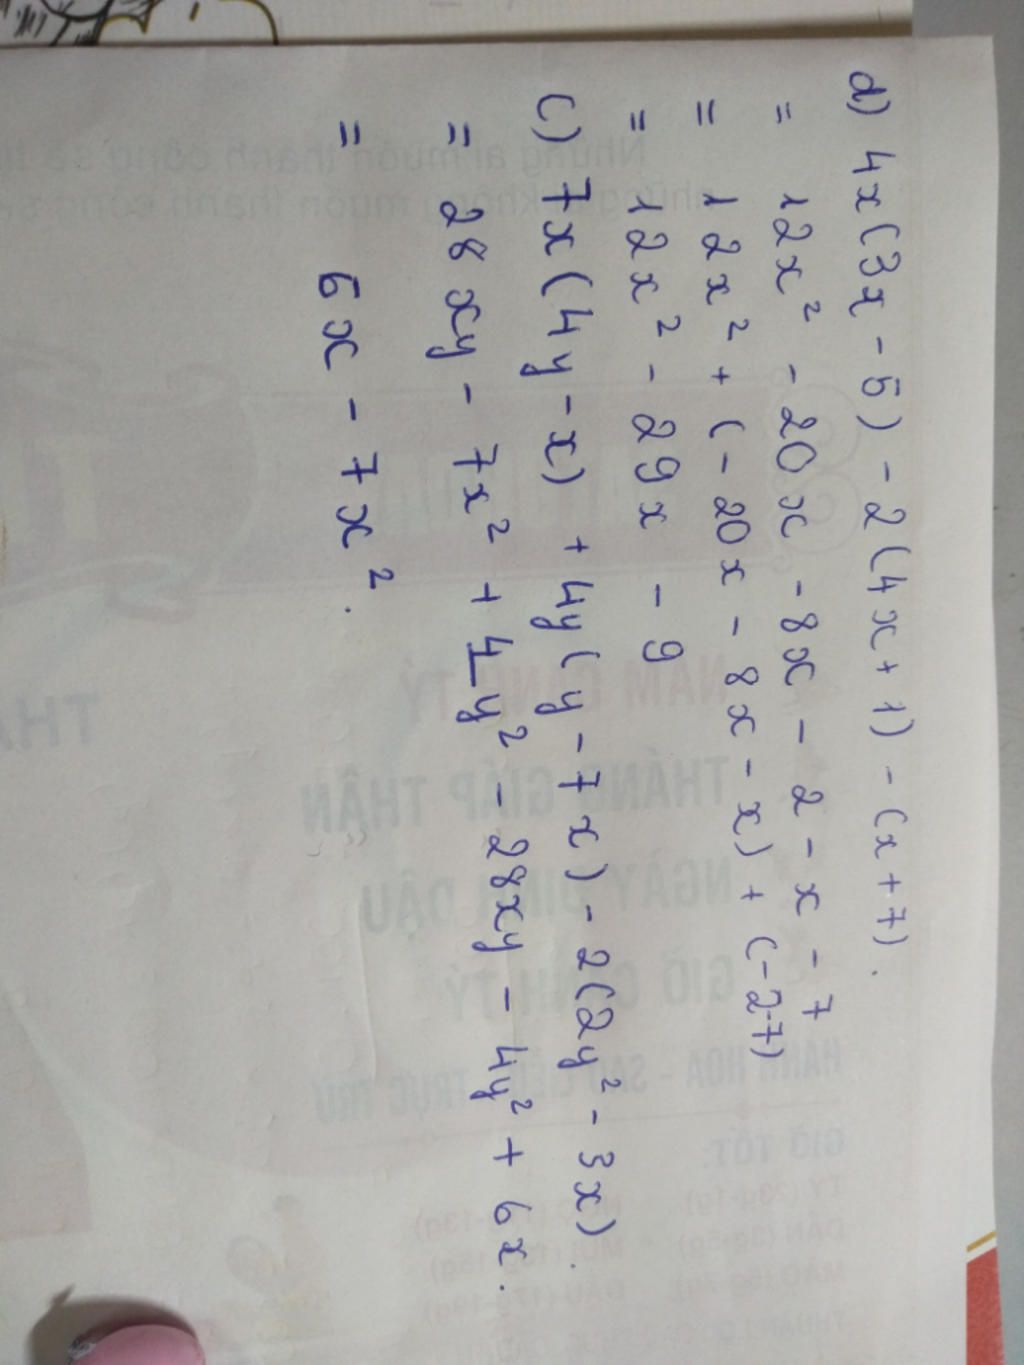 d) 4x(3x - 5) - 2(4x + 1) - (x + 7).
= 12x² - 20x - 8x - 2 - x - 7
= 12x² + (-20x - 8x - x) + (-2-7)
= 12x² - 29x - 9
c) 7x(4y - x) + 4y(y - 7x) - 2(2y² - 3x).
= 28xy - 7x² + 4y² - 28xy - 4y² + 6x.
= 6x - 7x².
Những ai muốn thành công sẽ
những không muốn thành công
NĂM CANH TÝ
THÁNG GIÁP THÂN
NGÀY ĐINH DẬU
GIỜ CANH TÝ
HÀNH HỎA - SAO - TRỰC TRỪ
GIỜ TỐT:
TÝ (23g-1g)
DẦN (3g-5g)
MÃO (5g-7g)
MÙI (13g-15g)
DẬU (17g-19g)